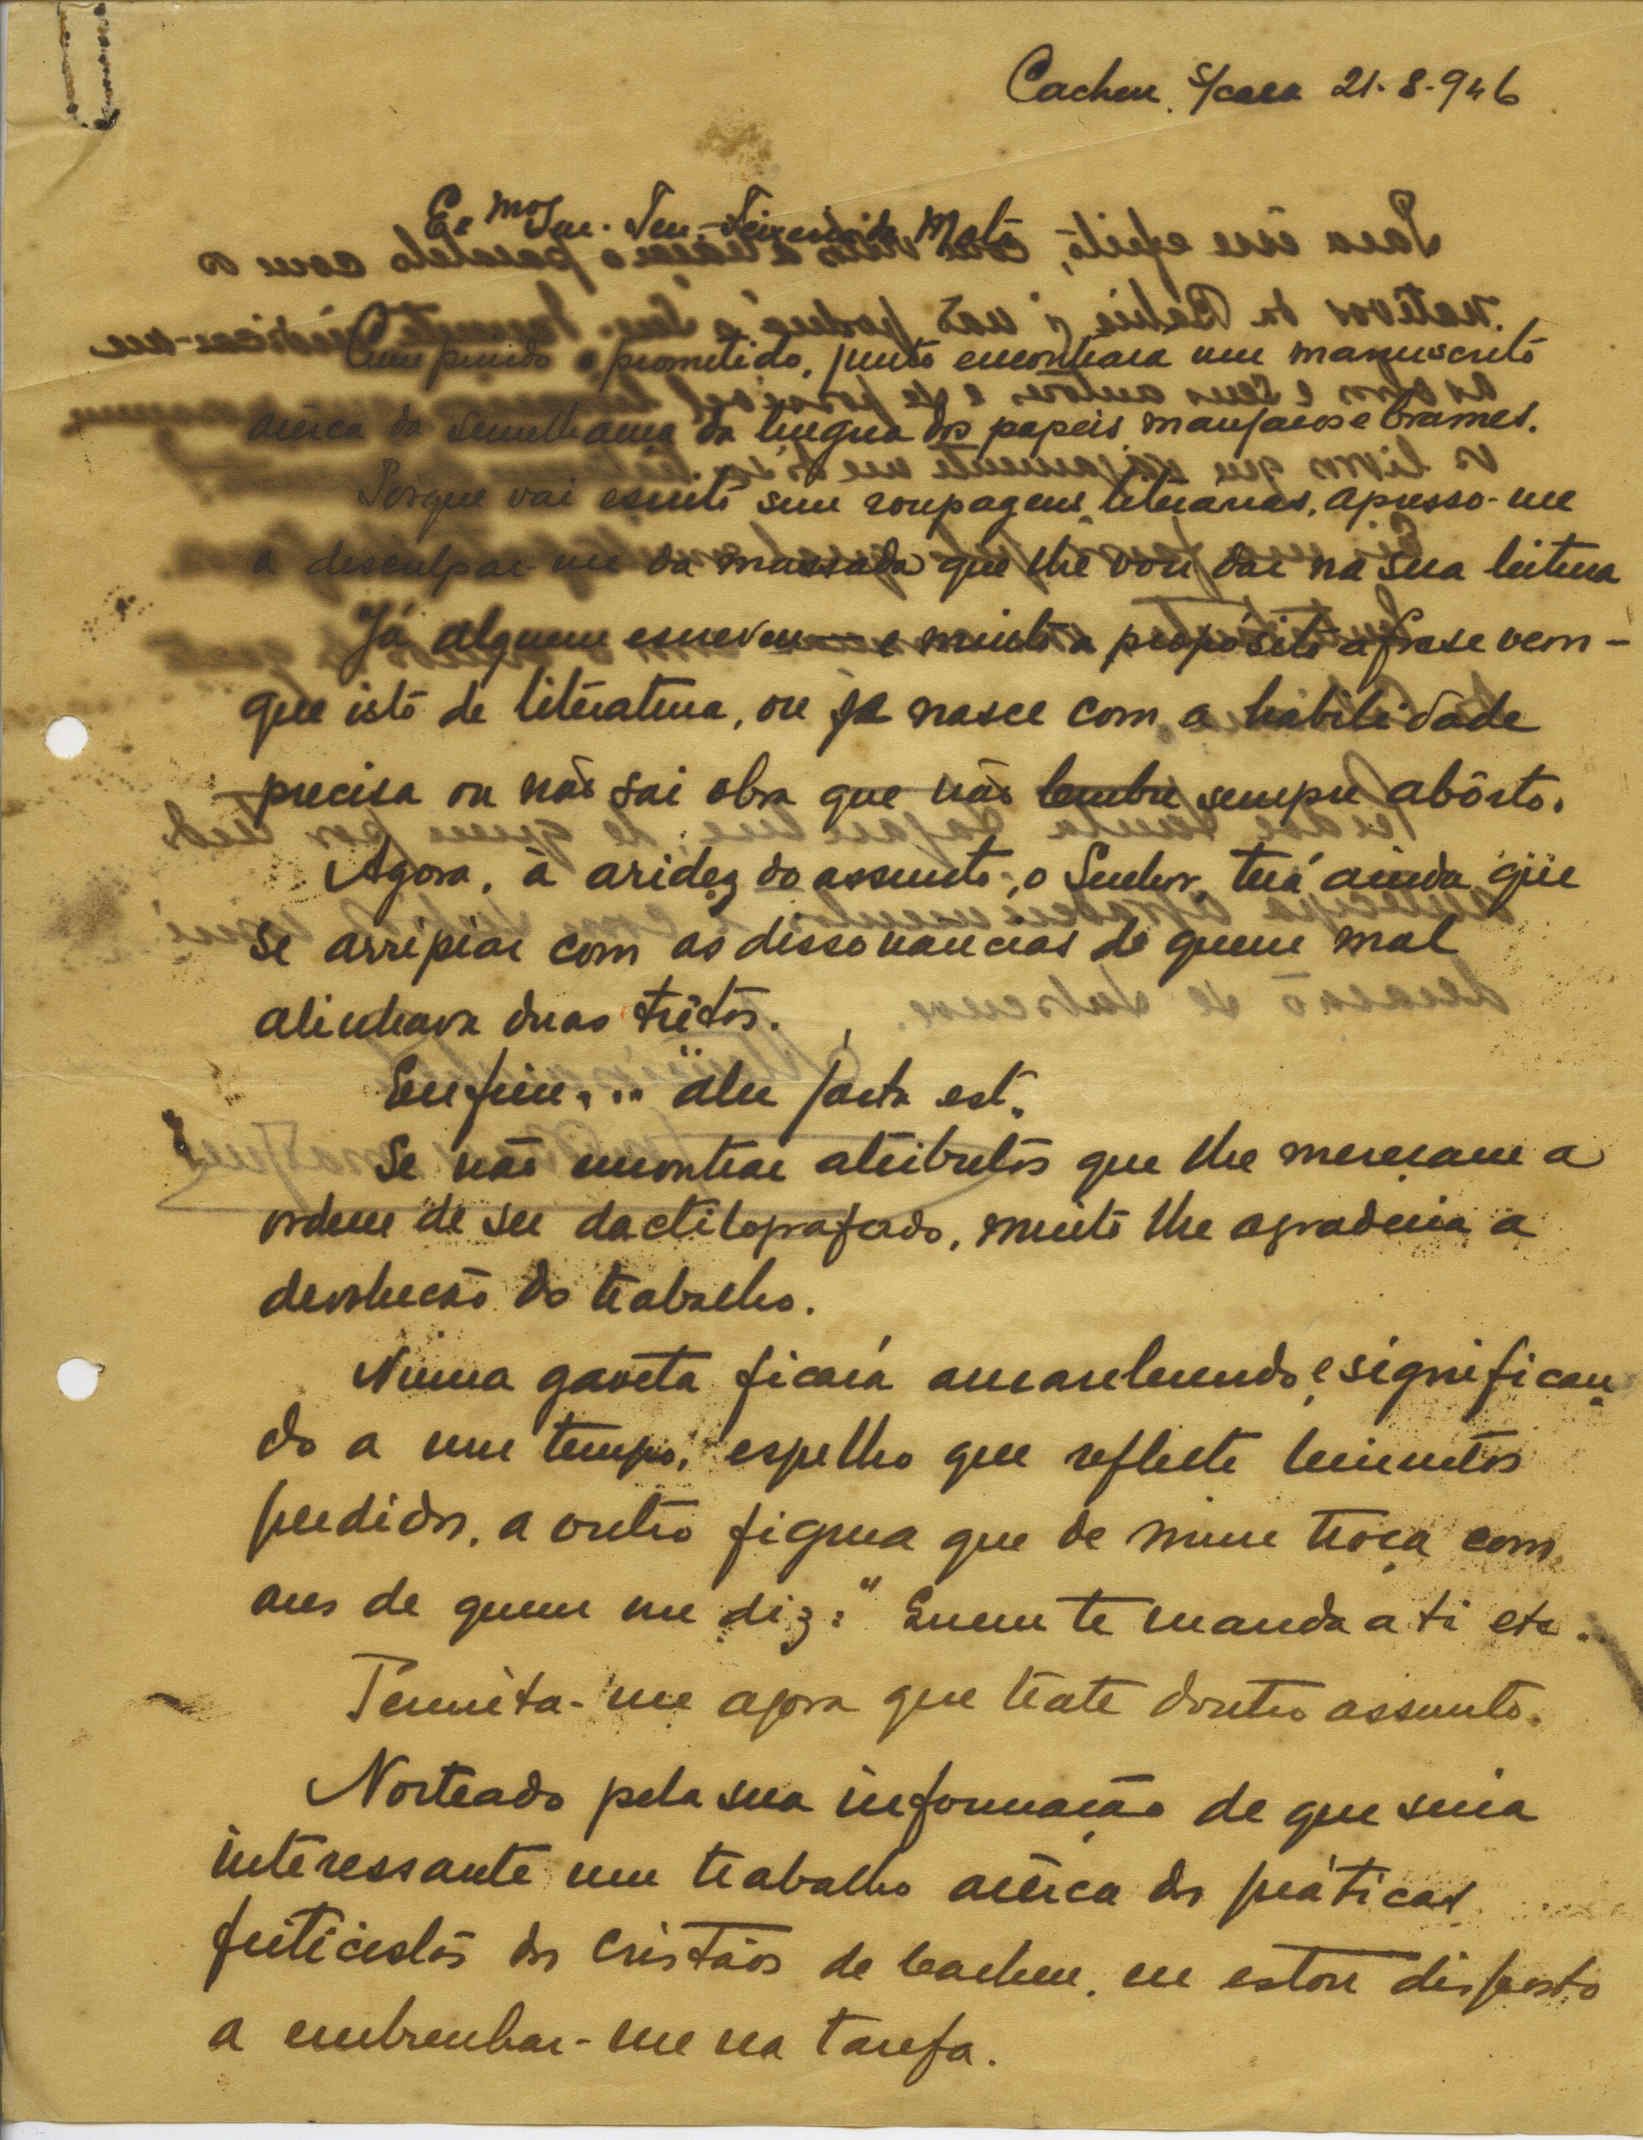 Cacheu, s/casa 21-8-946
Exmo Snr. Ten. Teixeira da Mota
Cumprindo o prometido, junto encontrará um manuscrito
acêrca da semelhança da lingua dos papeis, manjacos e brames.
Porque vai escrito sem roupagens literárias, apresso-me
a desculpar-me da massada que lhe vou dar na sua leitura
Já alguem escreveu — e muito a propósito a frase vem -
que isto de literatura, ou já nasce com a habilidade
precisa ou não sai obra que não lembre sempre abôrto.
Agora, à aridez do assunto, o Senhor terá ainda que
se arripiar com as dissonancias de quem mal
alinhava duas trêtas.
Enfim... alea jacta est.
Se não encontrar atributos que lhe mereçam a
ordem de ser dactilografado, muito lhe agradecia a
devolução do trabalho.
Numa gaveta ficará amarelecendo e significan
do a um tempo, espelho que reflecte minutos
perdidos, a outro figura que de mim troça com
ares de quem me diz: "Quem te manda a ti etc.
Permita-me agora que trate doutro assunto.
Norteado pela sua informação de que seria
interessante um trabalho acêrca das práticas
feiticistas dos cristãos de Cacheu, eu estou disposto
a embrenhar-me na tarefa.